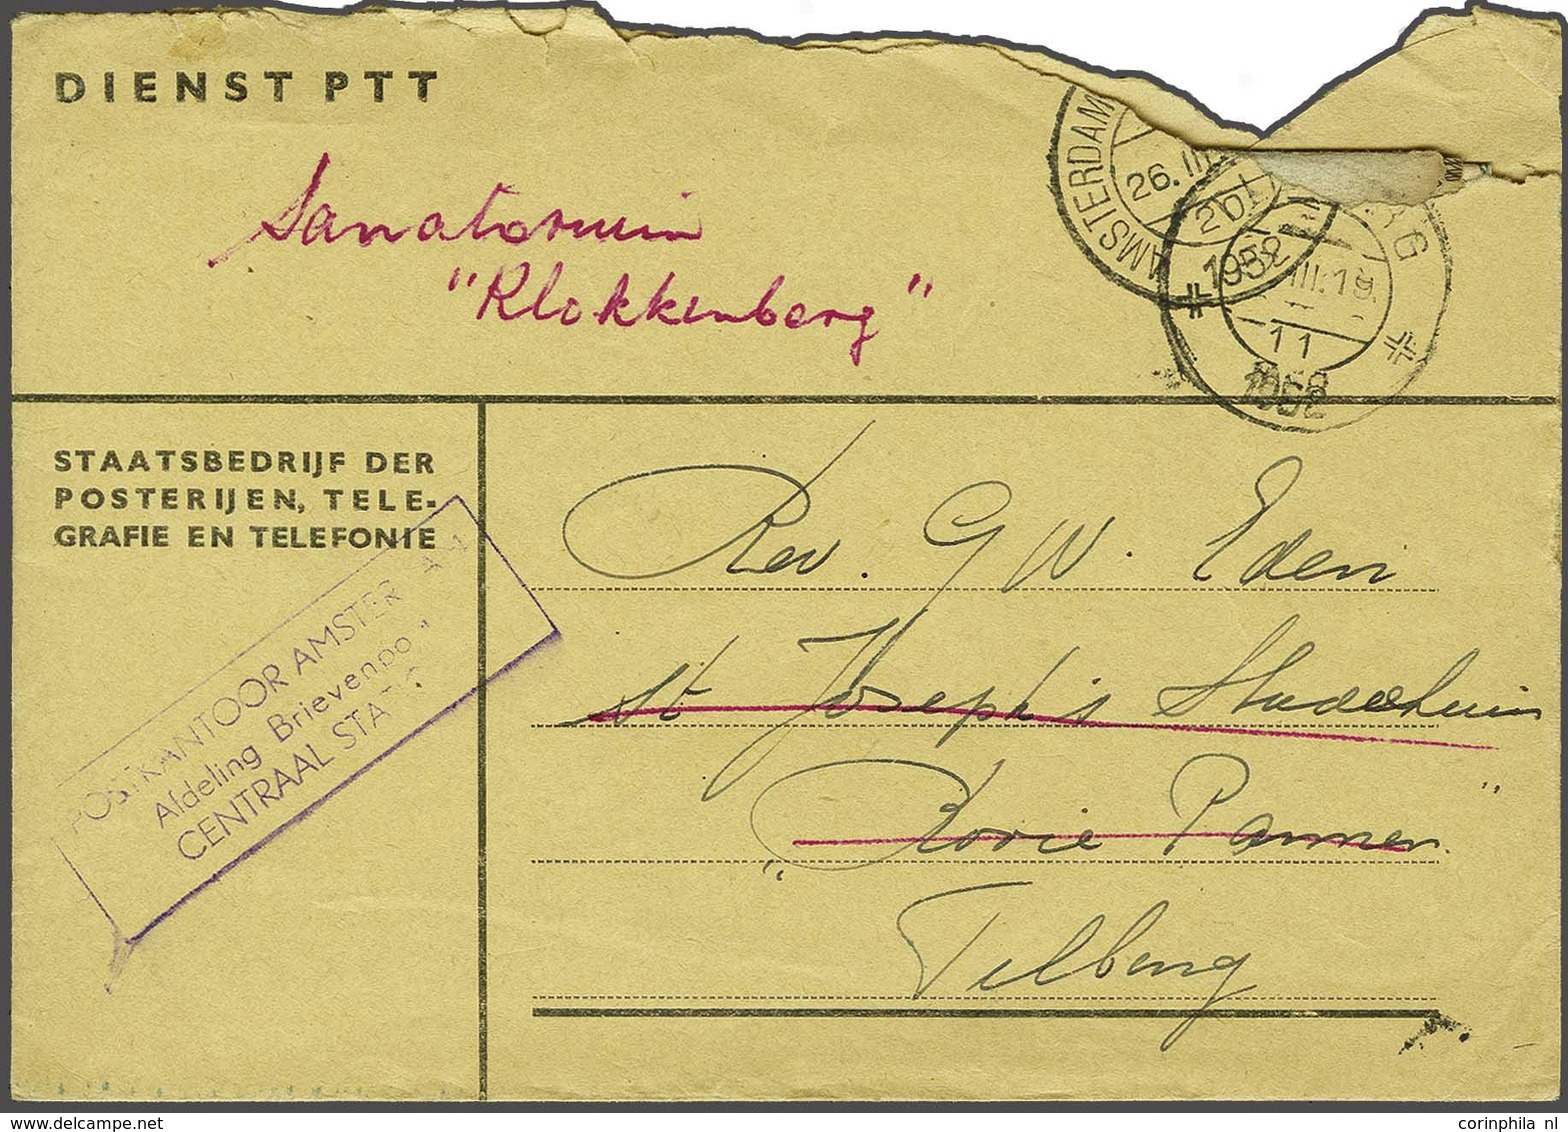 DIENST PTT
Sanatorium
"Klokkenberg"
AMSTERDAM
26.III
1952
III.19.
11
1952
STAATSBEDRIJF DER
POSTERIJEN, TELE-
GRAFIE EN TELEFONIE
POSTKANTOOR AMSTER AM
Afdeling Brievenpo
CENTRAAL STA
Rev. G W. Eden
St Joseph's Studiehuis
"Rooie Pannen"
Tilburg
corinphila nl